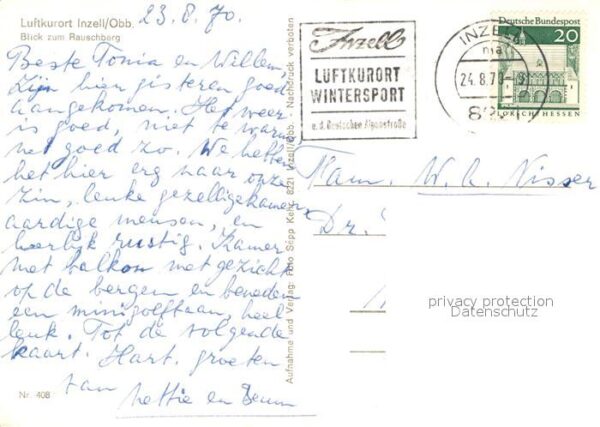 Luftkurort Inzell/Obb.
Blick zum Rauschberg
23.8.70.
Beste Tonia en Willem
Zijn hier gisteren goed
aangekomen. Het weer
is goed, niet te warm
net goed zo. We hebben
het hier erg naar onze
zin, leuke gezellige kamer
aardige mensen, en
heerlijk rustig. Kamer
met balkon met gezicht
op de bergen en beneden
een minigolfbaan, heel
leuk. Tot de volgende
kaart. Hart. groeten
van
Nettie en Teun
Nr. 408
Aufnahme und Verlag: Foto Sepp Kehr, 8221 Inzell/Obb. - Nachdruck verboten
Inzell
LUFTKURORT
WINTERSPORT
a.d. Deutschen Alpenstraße
INZELL
24.8.70
Deutsche Bundespost
20
LORSCH HESSEN
Fam. W. A. Visser
Dr.
privacy protection
Datenschutz